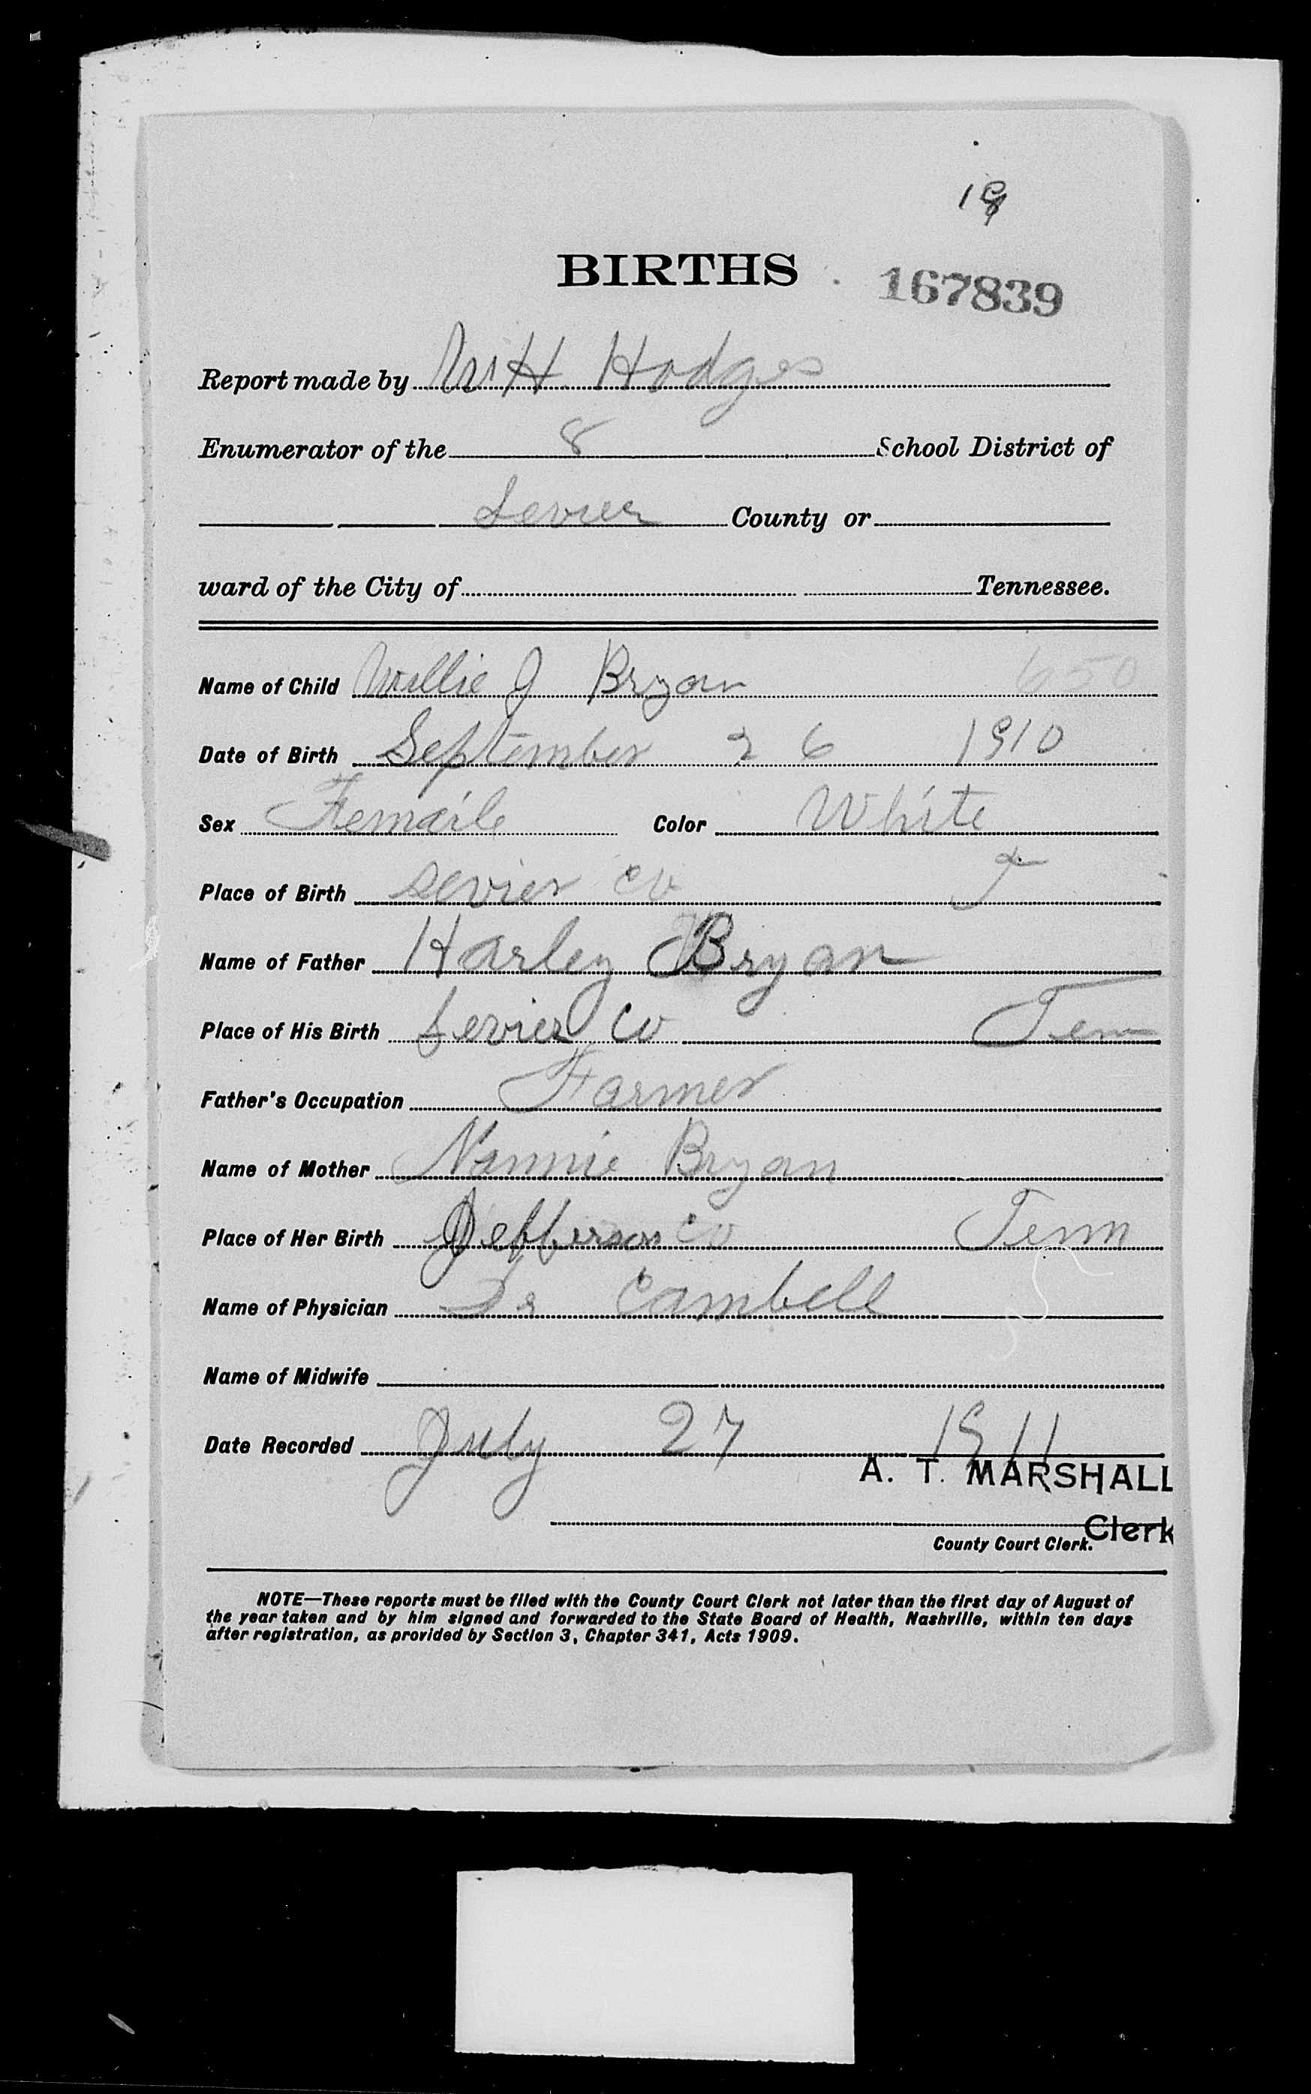 19
BIRTHS 167839
Report made by W H Hodges
Enumerator of the 8 School District of
Sevier County or
ward of the City of Tennessee.
Name of Child Willie J Bryan 650
Date of Birth September 26 1910
Sex Femaile Color White
Place of Birth Sevier Co T
Name of Father Harley Bryan
Place of His Birth Sevier Co Tenn
Father's Occupation Farmer
Name of Mother Nannie Bryan
Place of Her Birth Jefferson Co Tenn
Name of Physician Dr Cambell
Name of Midwife
Date Recorded July 27 1911
A. T. MARSHALL
Clerk
County Court Clerk.
NOTE—These reports must be filed with the County Court Clerk not later than the first day of August of
the year taken and by him signed and forwarded to the State Board of Health, Nashville, within ten days
after registration, as provided by Section 3, Chapter 341, Acts 1909.